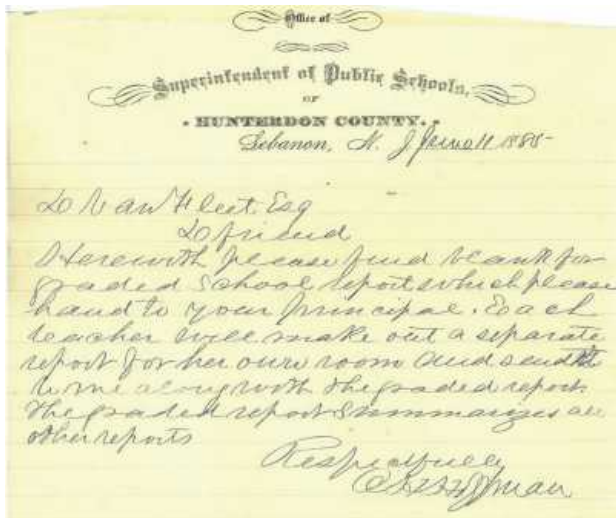 Office of
Superintendent of Public Schools,
OF
HUNTERDON COUNTY.
Lebanon, N. J June 11 1885
D Van Fleet. Esq
D friend
Herewith please find blank for
graded School report which please
hand to your principal. Each
teacher will make out a separate
report for her own room and send
to me along with the graded report
The graded report summarizes all
other reports
Respectfully